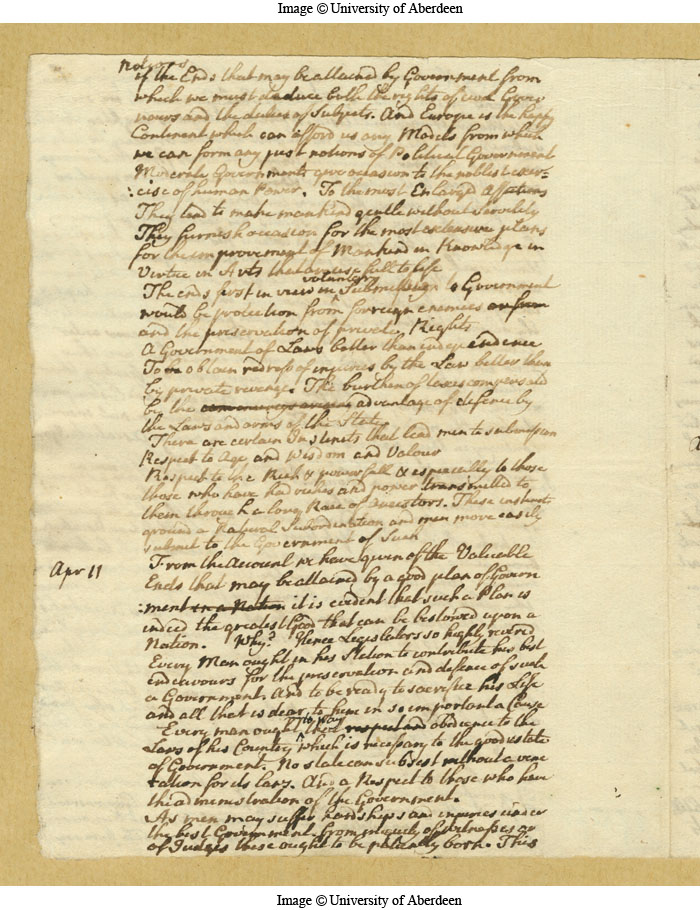 Image © University of Aberdeen
if the Ends that may be attained by Government from
which we must deduce both the rights of civil Gover
nours and the duties of Subjects. And Europe is the happy
Continent which can afford us any Models from which
we can form any just notions of Political Government
Moderate Governments give occasion to the noblest exer-
:cise of human Power. To the most Enlarged Affections
They tend to make mankind gentle without Servility
They furnish occasion for the most extensive plans
for the improvement of Mankind in Knowledge in
Virtue in Arts that are usefull to life
voluntary
The ends first in view in Submission to Government
would be protection from forreign enemies or from
and the preservation of private Rights
A Government of Laws better than independence
To obtain redress of injuries by the Law better than
by private revenge. The burthen of taxes compensated
by the advantage of defence by
the Laws and arms of the State
There are certain Instincts that lead men to submission
Respect to Age and Wisdom and Valour
Respect to the Rich & powerfull & especially to those
those who have had riches and power transmitted to
them through a long Race of Ancestors. These instincts
ground a Natural Subordination and men move easily
submit to the Government of Such
Apr 11
From the Account we have given of the Valuable
Ends that may be attained by a good plan of Govern
:ment in a Nation it is evident that such a Plan is
indeed the greatest Good that can be bestowed upon a
Nation. Why? Hence Legislators so highly revered
Every Man ought in his Station to contribute his best
endeavours for the preservation and defence of such
a Government. And to be ready to sacrifice his Life
and all that is dear to him in so important a Cause
to pay
Every man ought that respect and obedience to the
Laws of his Country which is necessary to the good state
of Government. No state can subsist without a vene
ration for its laws. And a Respect to those who have
the administration of the Government.
As men may suffer hardships and injuries under
the best Government from iniquity of Witnesses or
of Judges these ought to be patiently born. This
Image © University of Aberdeen